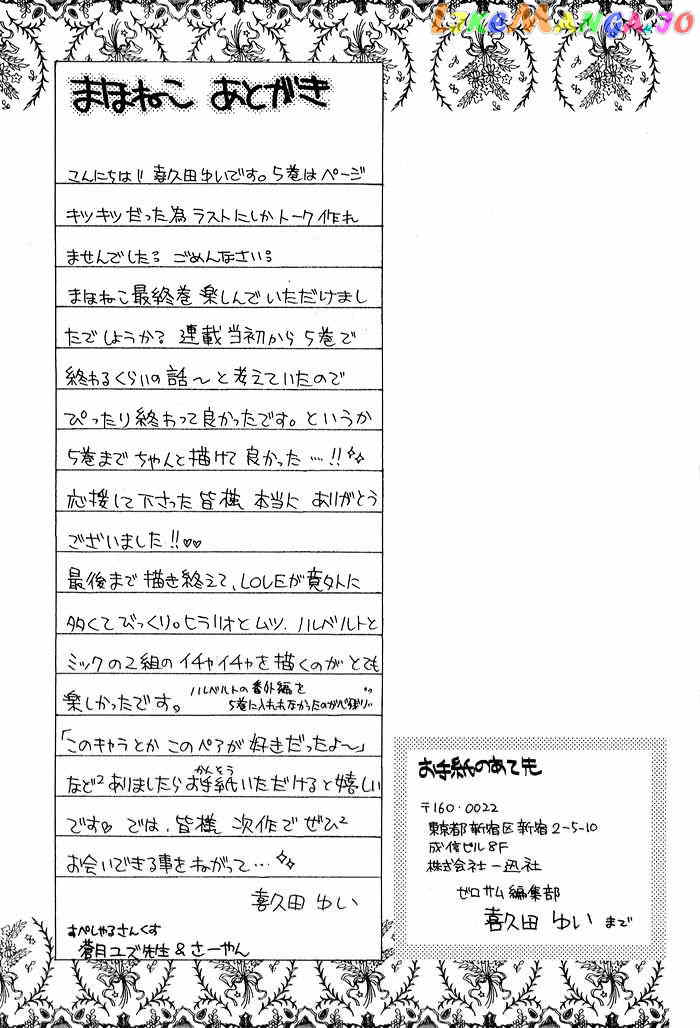 LIKEMANGA.IO
まほねこ あとがき
こんにちは!! 喜久田ゆいです。5巻はページ
キツキツだった為 ラストにしかトーク作れ
ませんでした; ごめんなさい;
まほねこ最終巻 楽しんでいただけまし
たでしょうか? 連載当初から5巻で
終わるくらいの話〜と考えていたので
ぴったり終わって良かったです。というか
5巻まで ちゃんと描けて良かった…!!
応援して下さった 皆様 本当に ありがとう
ございました!!♡♡
最後まで描き終えて、LOVEが意外に
多くてびっくり。ヒラリオとムツ、ハルベルトと
ミックの2組のイチャイチャを描くのが とても
楽しかったです。 ハルベルトの番外編を
5巻に入れれなかったのが心残り…
「このキャラとか このペアが 好きだったよ〜」
など² ありましたら お手紙いただけると嬉しい
かんそう
です♡ では、皆様 次作で ぜひ²
お会いできる事をねがって…
喜久田 ゆい
すぺしゃるさんくす
蒼月ユブ先生 & さーやん
お手紙のあて先
〒160-0022
東京都新宿区新宿2-5-10
成信ビル8F
株式会社一迅社
ゼロサム編集部
喜久田 ゆい まで